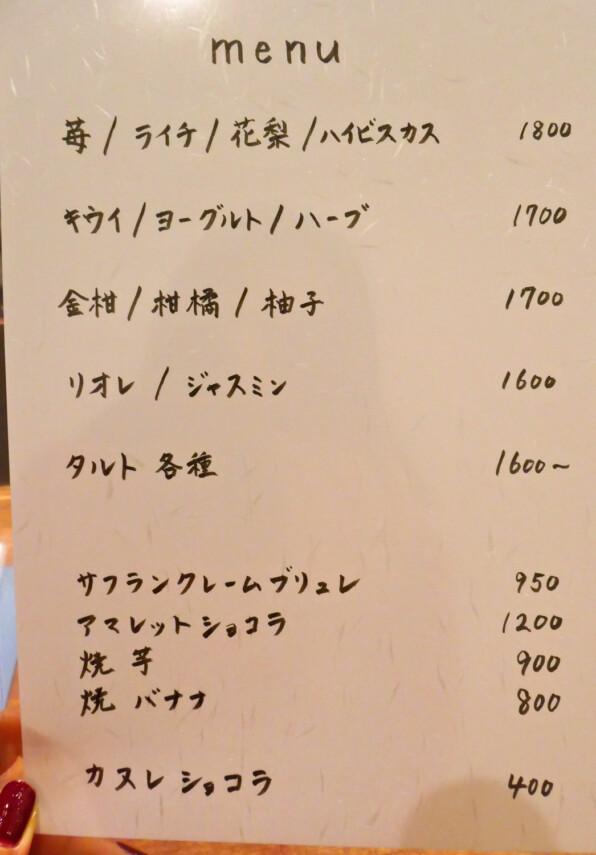 menu
苺 / ライチ / 花梨 / ハイビスカス 1800
キウイ / ヨーグルト / ハーブ 1700
金柑 / 柑橘 / 柚子 1700
リオレ / ジャスミン 1600
タルト 各種 1600~
サフランクレームブリュレ 950
アマレットショコラ 1200
焼 芋 900
焼 バナナ 800
カヌレ ショコラ 400